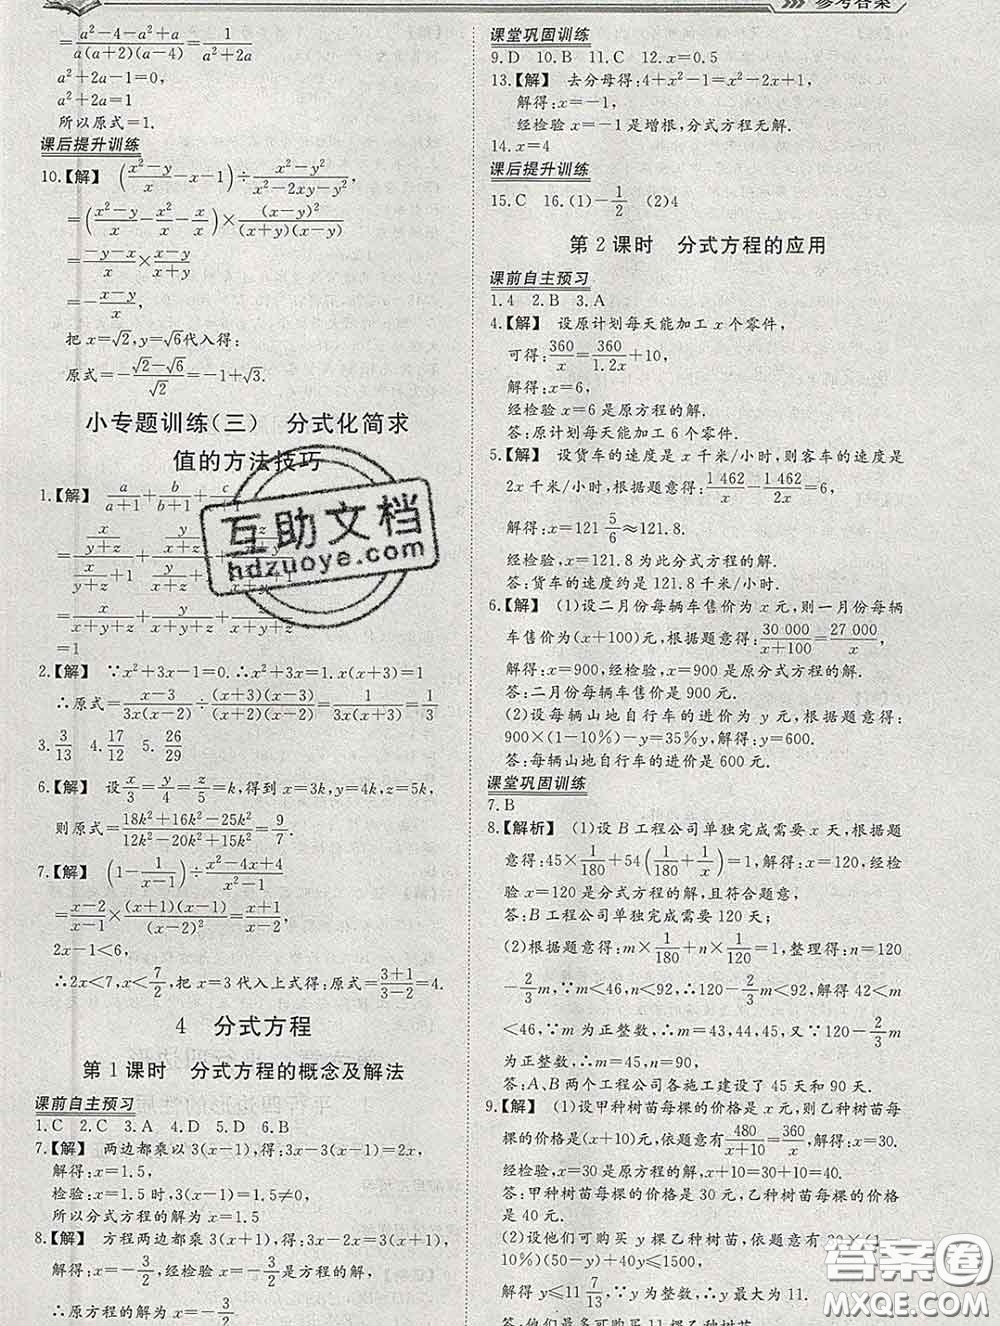 参考答案
=(a²-4-a²+a)/(a(a+2)(a-4))=1/(a²+2a)
a²+2a-1=0,
a²+2a=1
所以原式=1.
课后提升训练
10.【解】 ((x²-y)/x-x-1)÷(x²-y²)/(x²-2xy-y²),
=((x²-y)/x-x²/x-x/x)×(x-y)²/((x+y)(x-y))
=(-y-x)/x×(x-y)/(x+y)
=-(x-y)/x,
把 x=√2,y=√6代入得:
原式=-(√2-√6)/√2=-1+√3.
小专题训练(三) 分式化简求
值的方法技巧
1.【解】 a/(a+1)+b/(b+1)+c/
=1
2.【解】 ∵x²+3x-1=0.∴x²+3x=x(x+3)=1
∴原式=(x-3)/(3x(x-2))÷((x+3)(x-3))/((x+2)(x-2))=1/(3x(x+3))=1/3
3.3/13 4.17/12 5.26/29
6.【解】 设x/3=y/4=z/5=k,得到 x=3k,y=4k,z=5k,
则原式=(18k²+16k²-25k²)/(12k²-20k²+15k²)=9/7.
7.【解】 (1-1/(x-1))÷(x²-4x+4)/(x²-1)
=(x-2)/(x-1)×((x+1)(x-1))/(x-2)²=(x+1)/(x-2).
2x-1<6,
∴2x<7,x<7/2,把 x=3 代入上式得:原式=(3+1)/(3-2)=4.
4 分式方程
第1课时 分式方程的概念及解法
课前自主预习
1.C 2.C 3.A 4.D 5.D 6.B
7.【解】 两边都乘以 3(x-1),得:3x-3(x-1)=2x,
解得:x=1.5,
检验:x=1.5 时,3(x-1)=1.5≠0,
所以分式方程的解为 x=1.5
8.【解】 方程两边都乘 3(x+1),得:3x-2x=3(x+1),
解得:x=-3/2,经检验 x=-3/2 是方程的解,
∴原方程的解为 x=-3/2
课堂巩固训练
9.D 10.B 11.C 12.x=0.5
13.【解】 去分母得:4+x²-1=x²-2x+1,
解得:x=-1,
经检验 x=-1 是增根,分式方程无解.
14.x=4
课后提升训练
15.C 16.(1)-1/2 (2)4
第2课时 分式方程的应用
课前自主预习
1.4 2.B 3.A
4.【解】 设原计划每天能加工 x 个零件,
可得:360/x=360/1.2x+10,
解得:x=6,
经检验 x=6 是原方程的解.
答:原计划每天能加工 6 个零件.
5.【解】 设货车的速度是 x 千米/小时,则客车的速度是
2x 千米/小时,根据题意得:1 462/x-1 462/2x=6,
解得:x=121 5/6≈121.8.
经检验,x=121.8 为此分式方程的解.
答:货车的速度约是 121.8 千米/小时.
6.【解】 (1)设二月份每辆车售价为 x 元,则一月份每辆
车售价为(x+100)元,根据题意得:30 000/(x+100)=27 000/x,
解得:x=900,经检验,x=900 是原分式方程的解.
答:二月份每辆车售价是 900 元.
(2)设每辆山地自行车的进价为 y 元,根据题意得:
900×(1-10%)-y=35%y,解得:y=600.
答:每辆山地自行车的进价是 600 元.
课堂巩固训练
7.B
8.【解析】 (1)设 B 工程公司单独完成需要 x 天,根据题
意得:45×1/180+54(1/180+1/x)=1,解得:x=120,经检
验 x=120 是分式方程的解,且符合题意,
答:B 工程公司单独完成需要 120 天;
(2)根据题意得:m×1/180+n×1/120=1,整理得:n=120
-2/3m,∵m<46,n<92,∴120-2/3m<92,解得 42<m
<46,∵m 为正整数,∴m=43,44,45,又∵120-2/3m
为正整数,∴m=45,n=90,
答:A、B 两个工程公司各施工建设了 45 天和 90 天.
9.【解】 (1)设甲种树苗每棵的价格是 x 元,则乙种树苗
每棵的价格是(x+10)元,依题意有480/(x+10)=360/x,解得:x=30.
经检验,x=30 是原方程的解,x+10=30+10=40.
答:甲种树苗每棵的价格是 30 元,乙种树苗每棵的价格
是 40 元.
(2)设他们可购买 y 棵乙种树苗,依题意有 30×(1-
10%)(50-y)+40y≤1500,
解得 y≤11 7/13,∵y 为整数,∴y 最大为 11.
答:他们最多可购买 11 棵乙种树苗.
互助文档
hdzuoye.com
答案圈
MXQE.COM